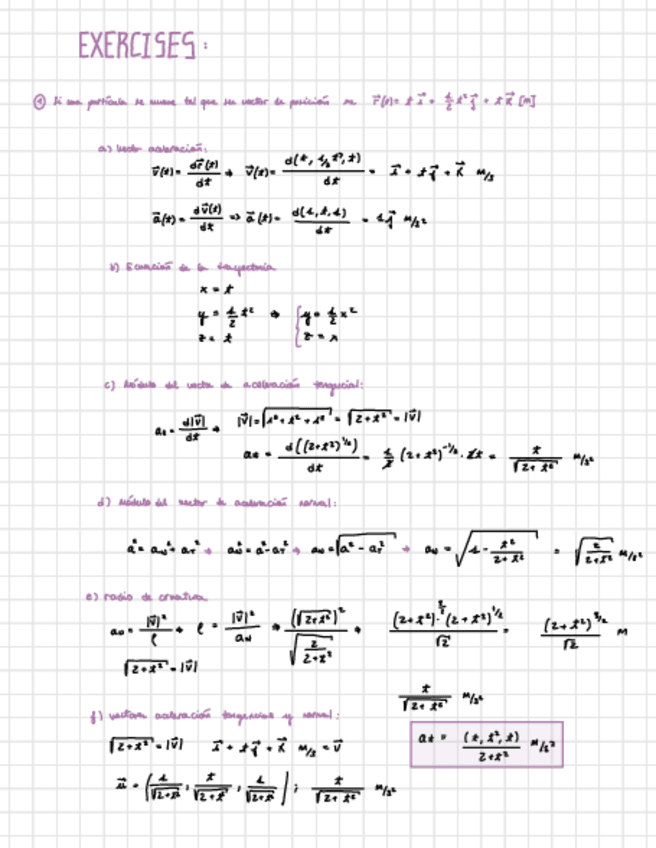 EXERCISES:
① Si una partícula se mueve tal que su vector de posición es r⃗(t)= t i⃗ + 1/2 t² j⃗ + t k⃗ [m]
a) Vector aceleración:
v⃗(t) = dr⃗(t)/dt → v⃗(t) = d(t, 1/2 t², t)/dt = i⃗ + t j⃗ + k⃗ m/s
a⃗(t) = dv⃗(t)/dt => a⃗(t) = d(1, t, 1)/dt = 1 j⃗ m/s²
b) Ecuación de la trayectoria
x = t
y = 1/2 t² → { y = 1/2 x²
z = t z = x
c) Módulo del vector de aceleración tangencial:
at = d|v⃗|/dt → |v⃗| = √(1² + t² + 1²) = √(2+t²) = |v⃗|
at = d((2+t²)^1/2)/dt = 1/2 (2+t²)^-1/2 · 2t = t/√(2+t²) m/s²
d) Módulo del vector de aceleración normal:
a² = aN² + aT² → aN² = a² - aT² → aN = √(a² - aT²) → aN = √(1 - t²/(2+t²)) = √(2/(2+t²)) m/s²
e) radio de curvatura
aN = |v⃗|²/ρ → ρ = |v⃗|²/aN → (√(2+t²))²/√(2/(2+t²)) → (2+t²)·(2+t²)^1/2/√2 = (2+t²)^3/2/√2 m
√(2+t²) = |v⃗|
t/√(2+t²) m/s²
f) vectores aceleración tangencial y normal:
√(2+t²) = |v⃗| i⃗ + t j⃗ + k⃗ m/s = v⃗
at = (t, t², t)/(2+t²) m/s²
u⃗ = (1/√(2+t²), t/√(2+t²), 1/√(2+t²)); t/√(2+t²) m/s²